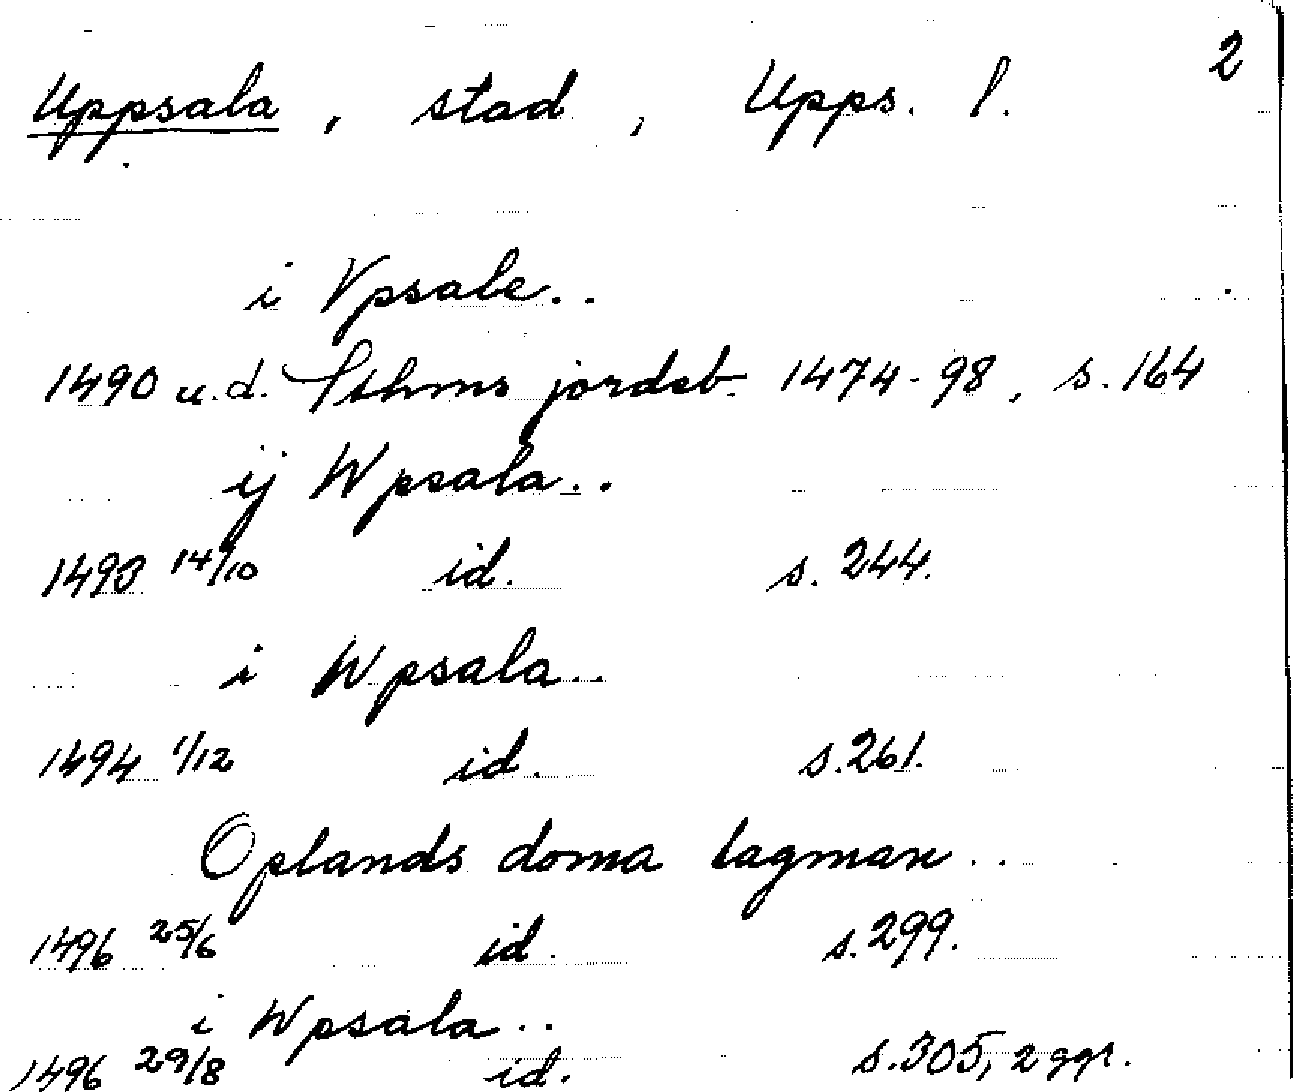 2
Uppsala, stad, Upps. l.
i Vpsale..
1490 u.d. Sthms jordeb. 1474-98, s. 164
ij Wpsala..
1493 14/10 id. s. 244.
i Wpsala..
1494 1/12 id. s. 261.
Oplands doma lagman..
1496 25/6 id. s. 299.
i Wpsala..
1496 29/8 id. s. 305, 2 ggr.